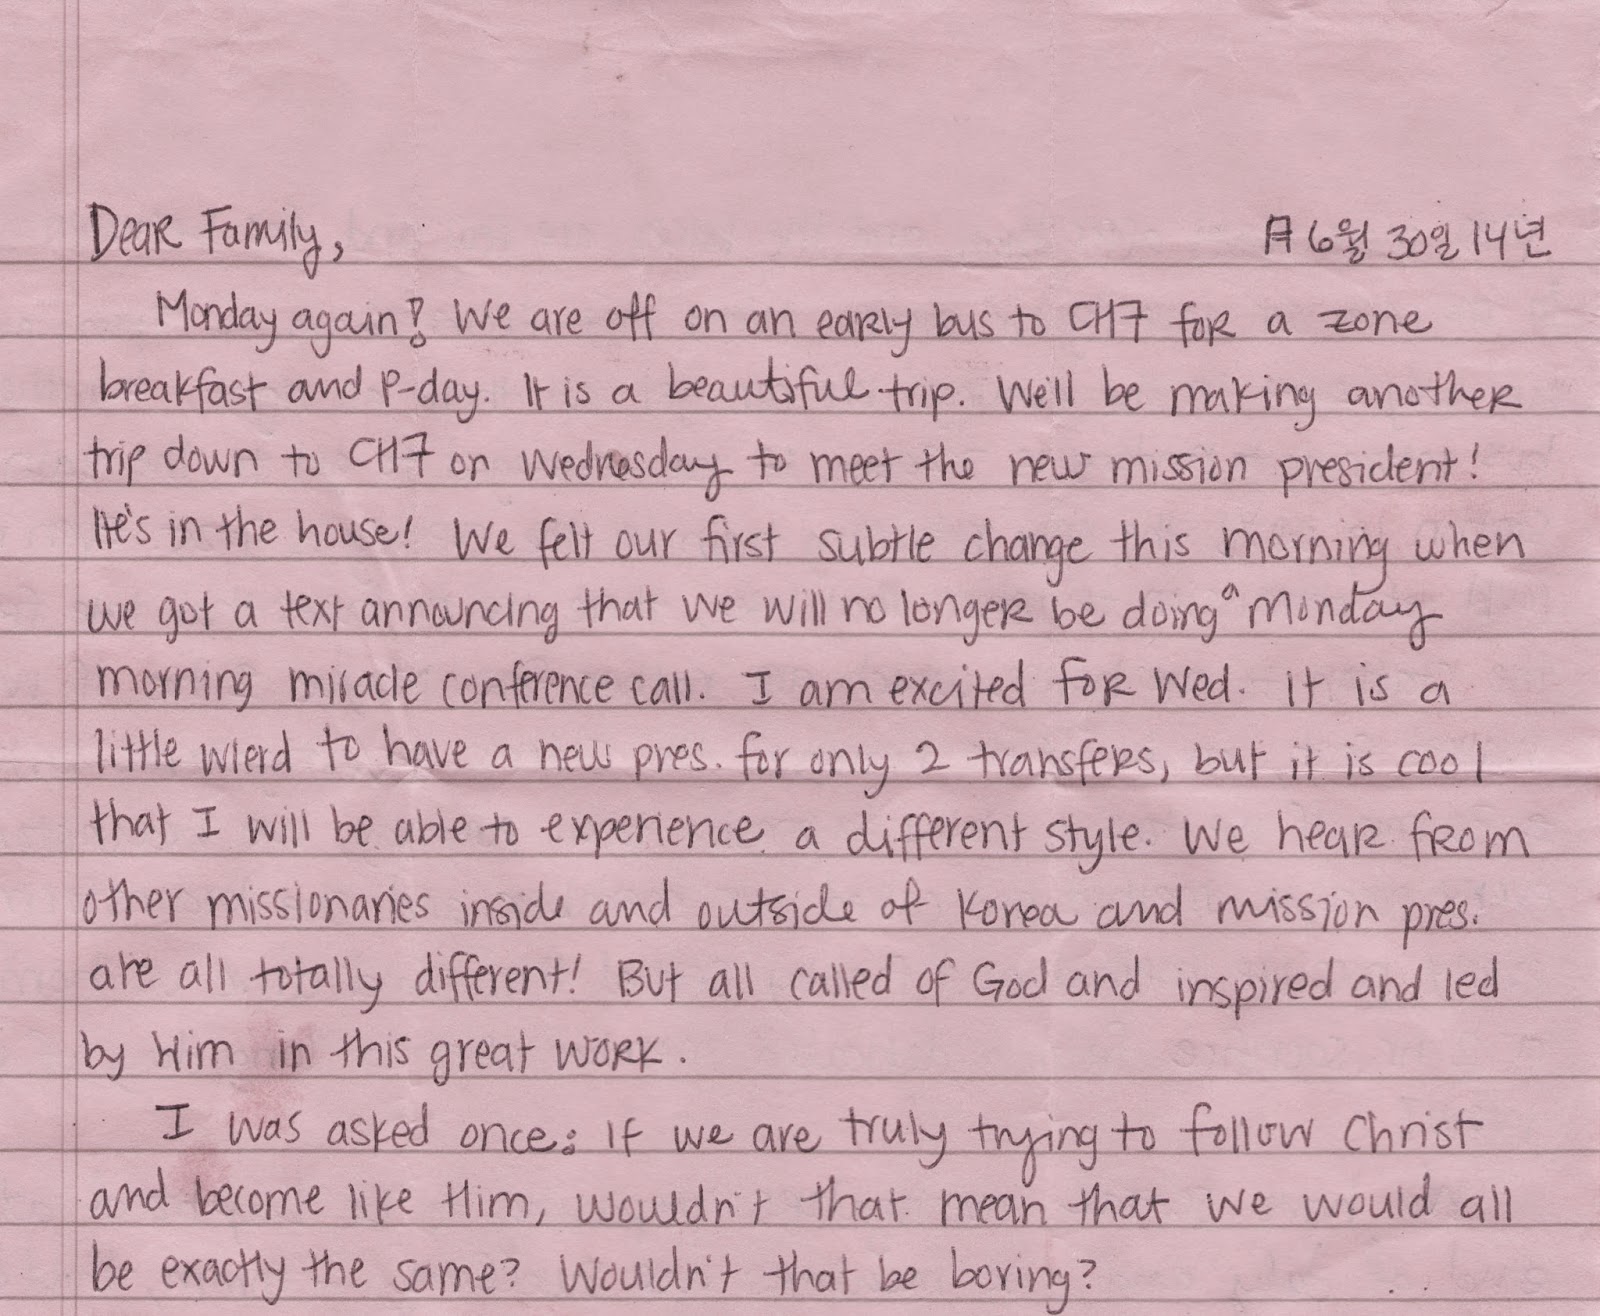 Dear Family, 月 6월 30일 14년
Monday again! We are off on an early bus to 대구 for a zone
breakfast and P-day. It is a beautiful trip. We'll be making another
trip down to 대구 on Wednesday to meet the new mission president!
He's in the house! We felt our first subtle change this morning when
we got a text announcing that we will no longer be doing a Monday
morning miracle conference call. I am excited for Wed. It is a
little wierd to have a new pres. for only 2 transfers, but it is cool
that I will be able to experience a different style. We hear from
other missionaries inside and outside of Korea and mission pres.
are all totally different! But all called of God and inspired and led
by Him in this great work.
I was asked once: If we are truly trying to follow Christ
and become like Him, wouldn't that mean that we would all
be exactly the same? Wouldn't that be boring?